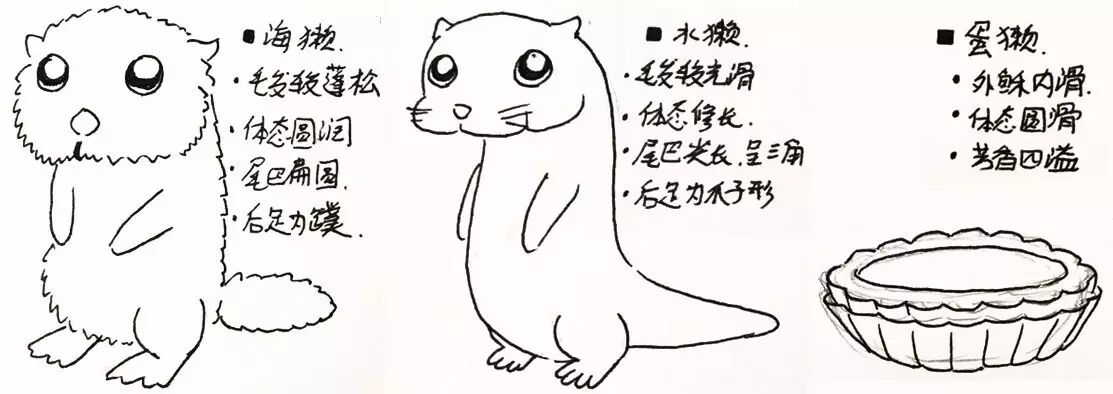 ■ 海獭.
· 毛发较蓬松
· 体态圆润
· 尾巴扁圆.
· 后足为蹼.
■ 水獭.
· 毛发较光滑
· 体态修长.
· 尾巴尖长.呈三角
· 后足为爪子形
■ 蛋獭.
· 外酥内滑.
· 体态圆滑
· 芳香四溢